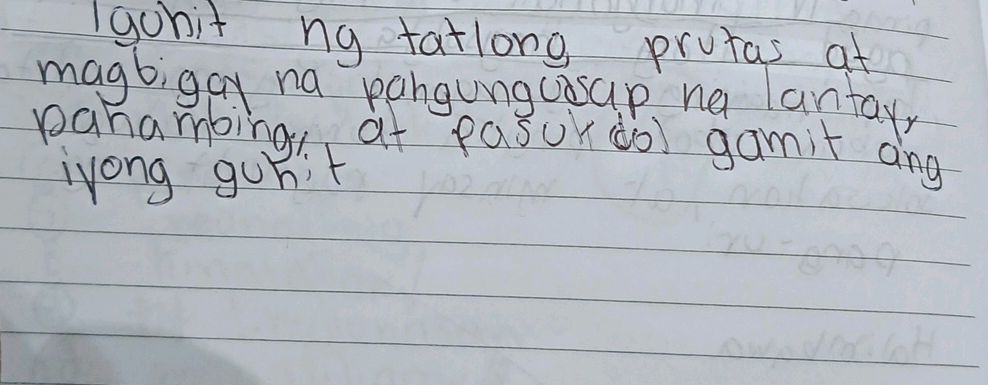 Iguhit ng tatlong prutas at
magbigay na pangungusap na lantay,
pahambing, at pasukdol gamit ang
iyong guhit